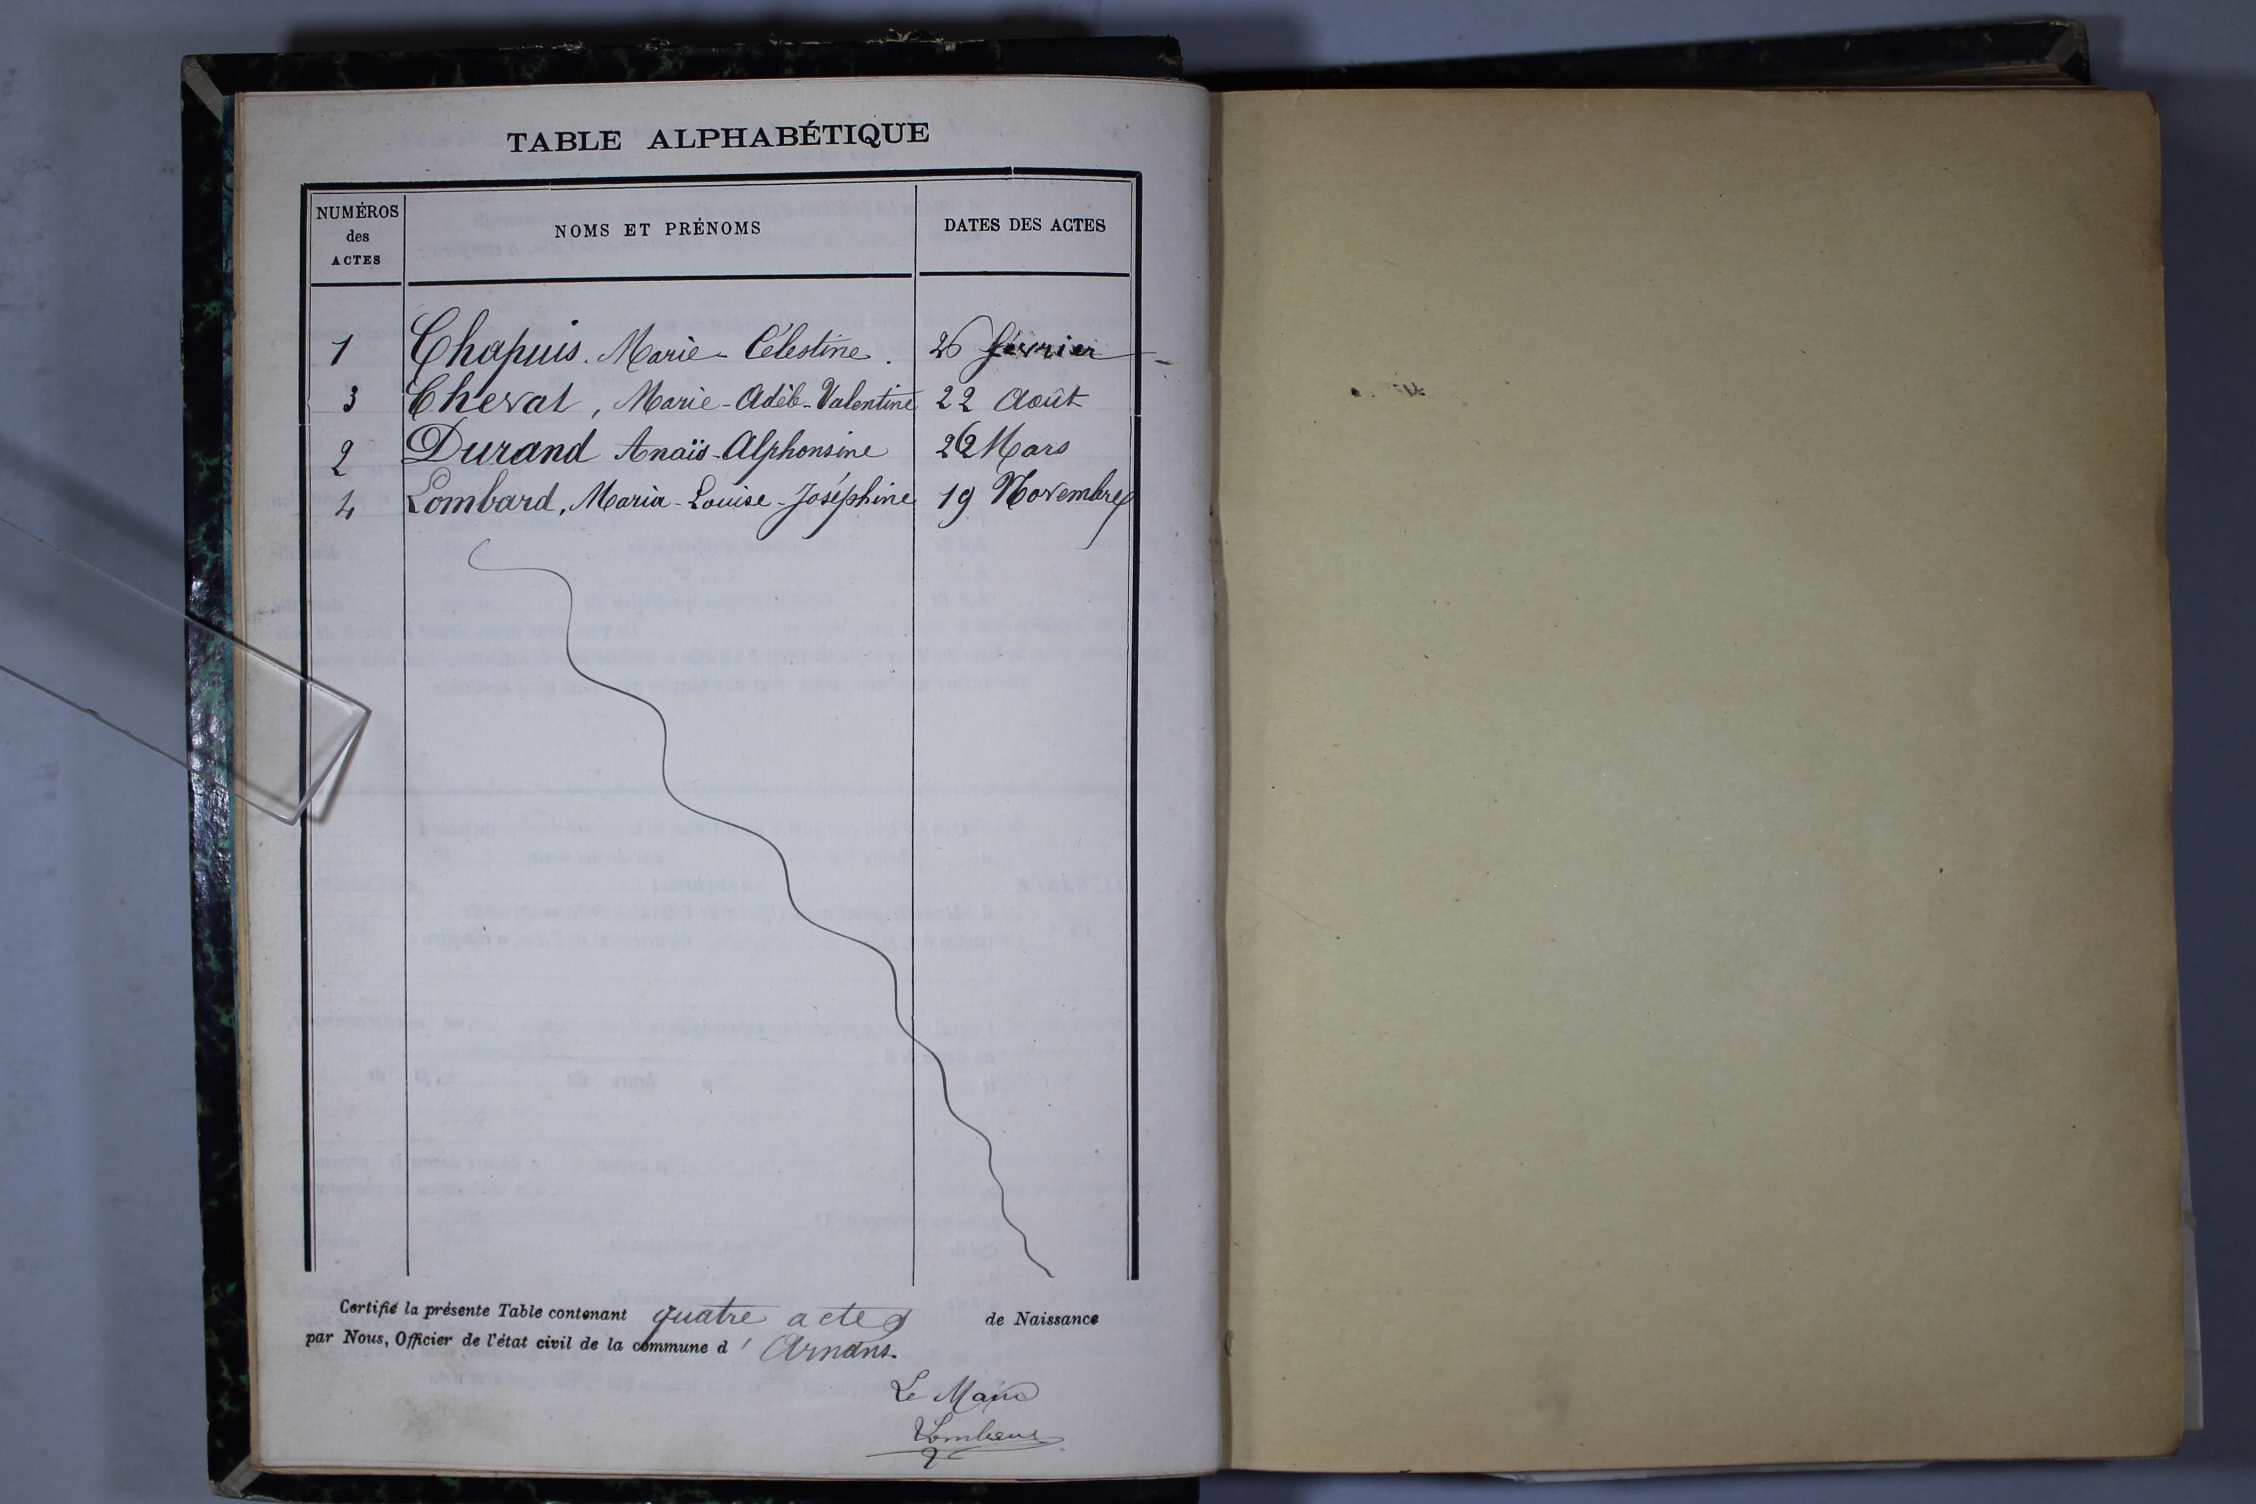 TABLE ALPHABÉTIQUE
NUMÉROS
des
ACTES
NOMS ET PRÉNOMS
DATES DES ACTES
1 Chapuis. Marie-Célestine. 26 février
3 Cheval, Marie-Adèle-Valentine 22 Août
2 Durand Anaïs-Alphonsine Mars
4 Lombard, Maria-Louise-Joséphine 19 Novembre
Certifié la présente Table contenant quatre actes de Naissance
par Nous, Officier de l'état civil de la commune d' Arnans.
Le Maire